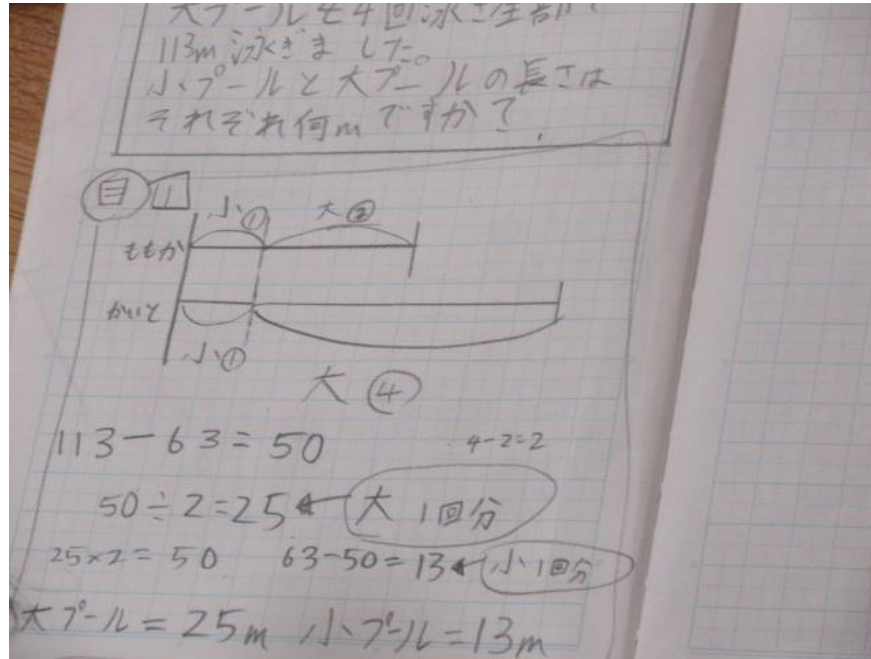 大プールを4回泳ぎ全部で
113m泳ぎました。
小プールと大プールの長さは
それぞれ何mですか?
自 1
小① 大②
ももか
かいと
小①
大④
113-63=50 4-2=2
50÷2=25←大 1回分
25×2=50 63-50=13←小1回分
大プール=25m 小プール=13m